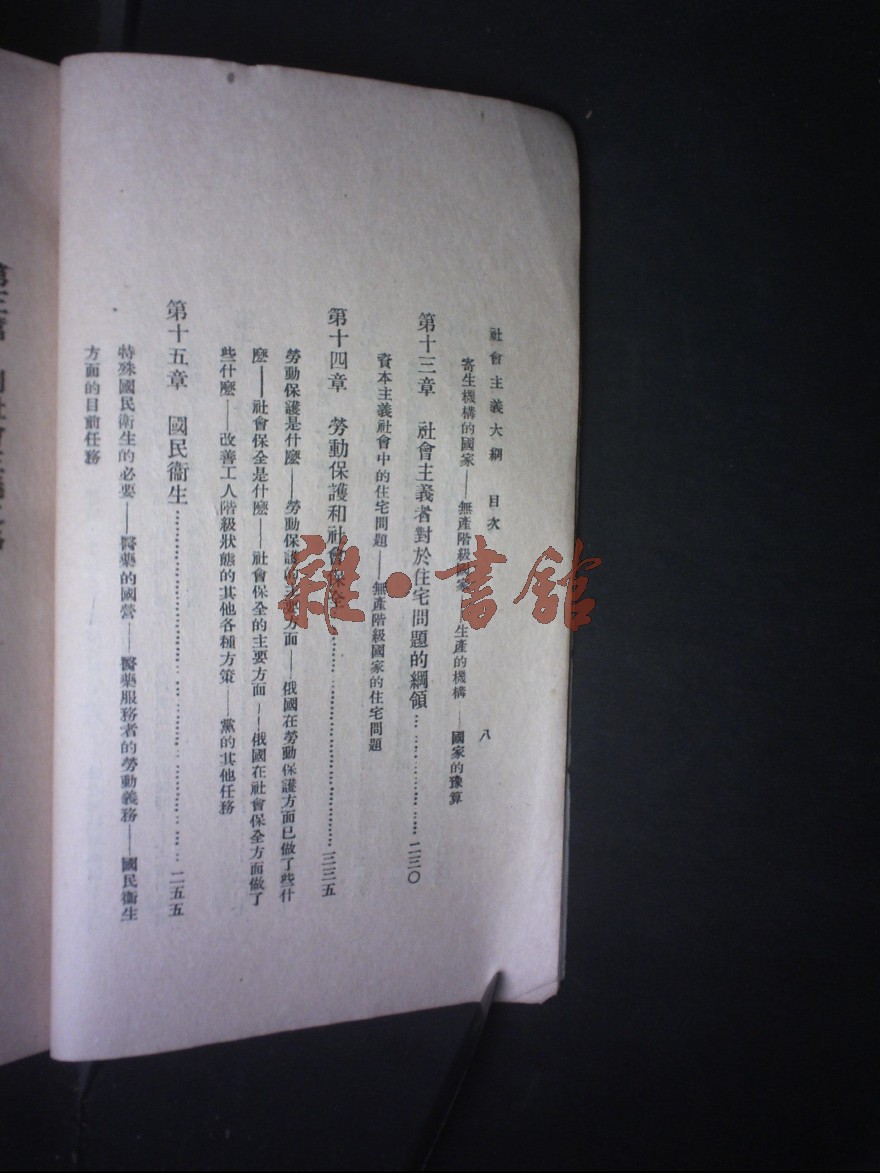 社會主義大綱　目次　八
寄生機構的國家——無產階級國家——生產的機構——國家的豫算
第十三章　社會主義者對於住宅問題的綱領……………二三〇
資本主義社會中的住宅問題——無產階級國家的住宅問題
第十四章　勞動保護和社會保全……………………三三五
勞動保護是什麼——勞動保護的主要方面——俄國在勞動保護方面已做了些什
麼——社會保全是什麼——社會保全的主要方面——俄國在社會保全方面做了
些什麼——改善工人階級狀態的其他各種方策——黨的其他任務
第十五章　國民衞生……………………………………二五五
特殊國民衞生的必要——醫藥的國營——醫藥服務者的勞動義務——國民衞生
方面的目前任務
雜·書館